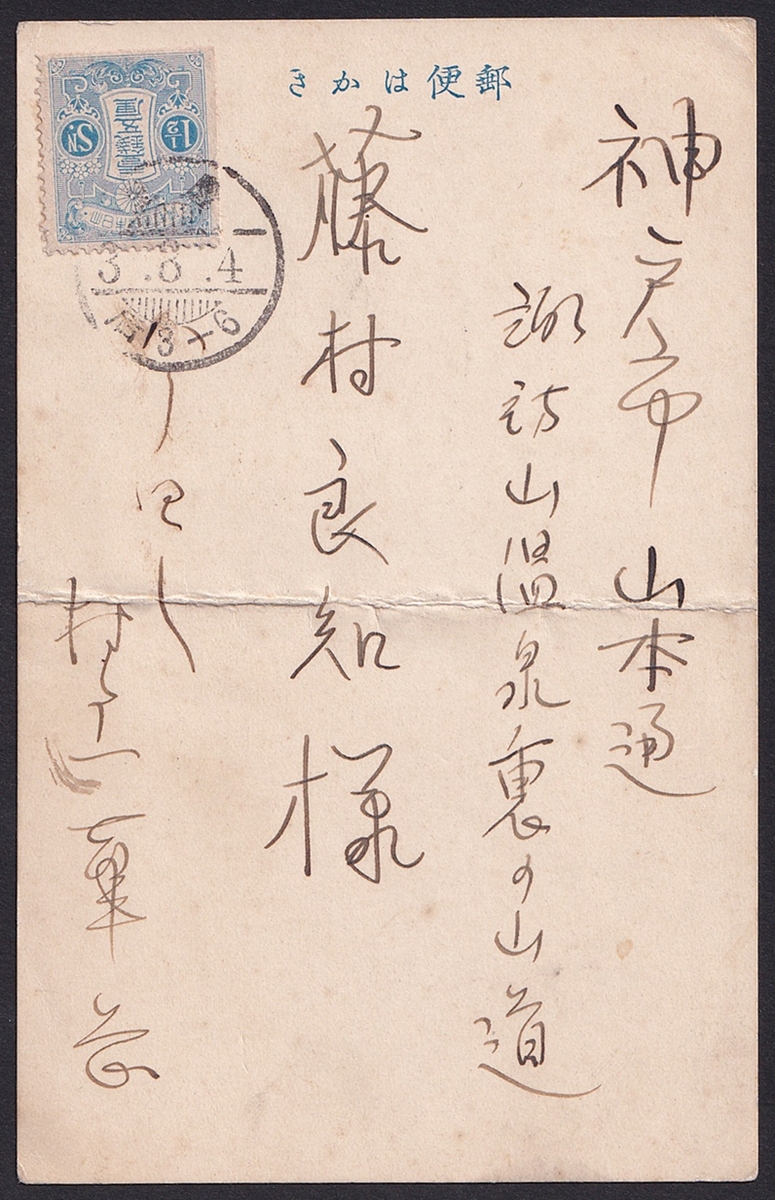 郵便はかき
神戸市山本通
諏訪山温泉裏の山道
藤村良知様
1½ SN
壹錢五厘
3.8.4